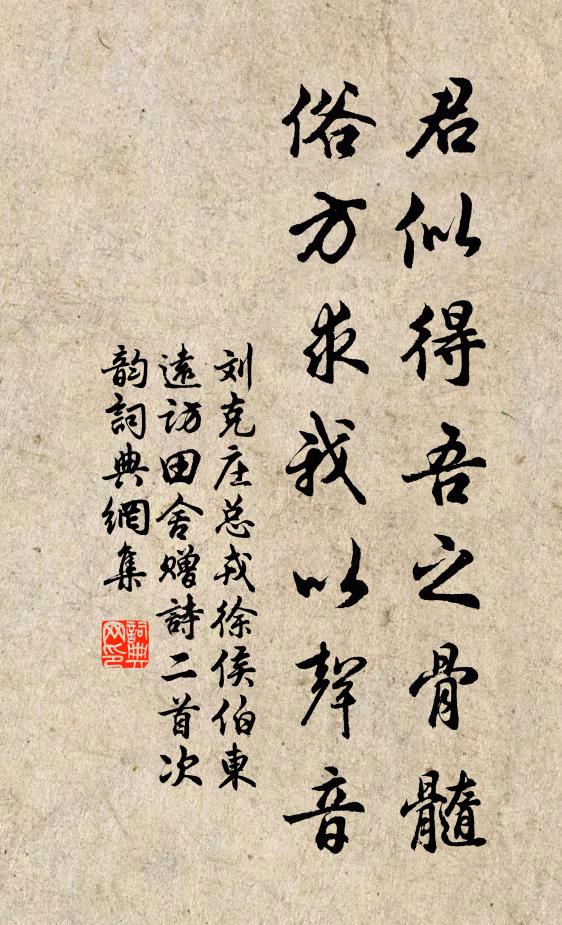 君似得吾之骨髓
俗方求我以聲音
刘克庄总戎徐侯伯東
遠访田舍赠詩二首次
韵詞典網集
詞典
网印